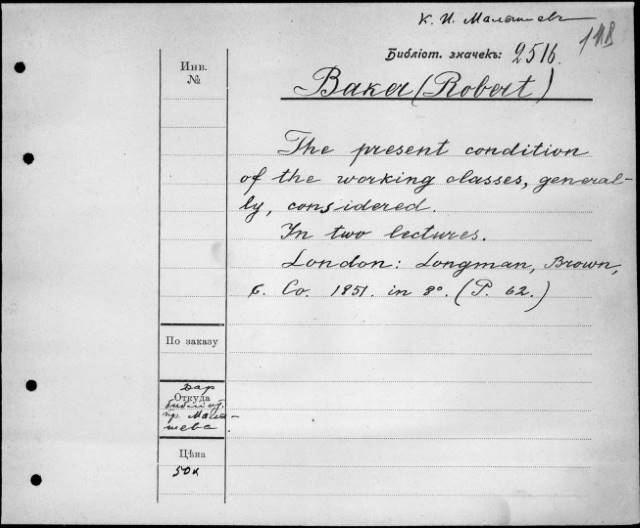 К. И. Малышевъ
118
Библіот. значекъ: 2516.
Инв.
№
Baker (Robert)
The present condition
of the working classes, general-
ly, considered.
In two lectures.
London: Longman, Brown,
&. Co. 1851. in 8°. (P. 62.)
По заказу
Откуда
Даръ
пр. Малы-
шева.
Цѣна
50к